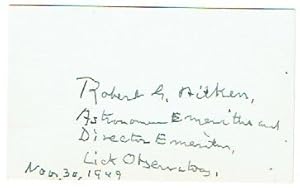 Robert G. Aitken,
Astronomer Emeritus and
Director Emeritus,
Lick Observatory.
Nov. 30, 1949